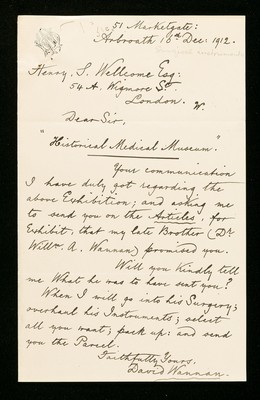 51 Marketgate:
Arbroath 16th Dec: 1912.
Henry S. Wellcome Esq:
54 A. Wigmore St.
London. W.
Dear Sir,
"Historical Medical Museum."
Your communication
I have duly got regarding the
above Exhibition; and asking me
to send you on the Articles, for
Exhibit, that my late Brother (Dr
Willm. A. Wannan) promised you.
Will you Kindly tell
me What he was to have sent you?
When I will go into his Surgery;
overhaul his Instruments; select
all you want; pack up: and send
you the Parcel.
Faithfully Yours.
David Wannan.